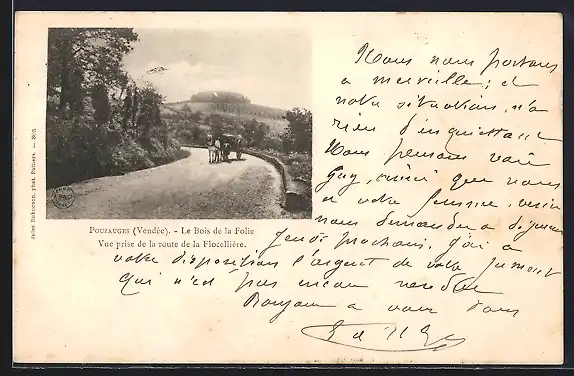 Nous nous portons
a merveille; et
notre situation n'a
rien d'inquiettant
Nous pensons voir
Guy, ainsi que nous
a votre femme, venir
nous demander a dejeuner
Jeudi prochain, j'ai a
votre disposition l'argent de votre jument
qui n'est pas encore vendue
Bonjour a vous tous
POUZAUGES (Vendée). - Le Bois de la Folie
Vue prise de la route de la Flocellière.
Jules Robuchon, phot. Poitiers. — 803